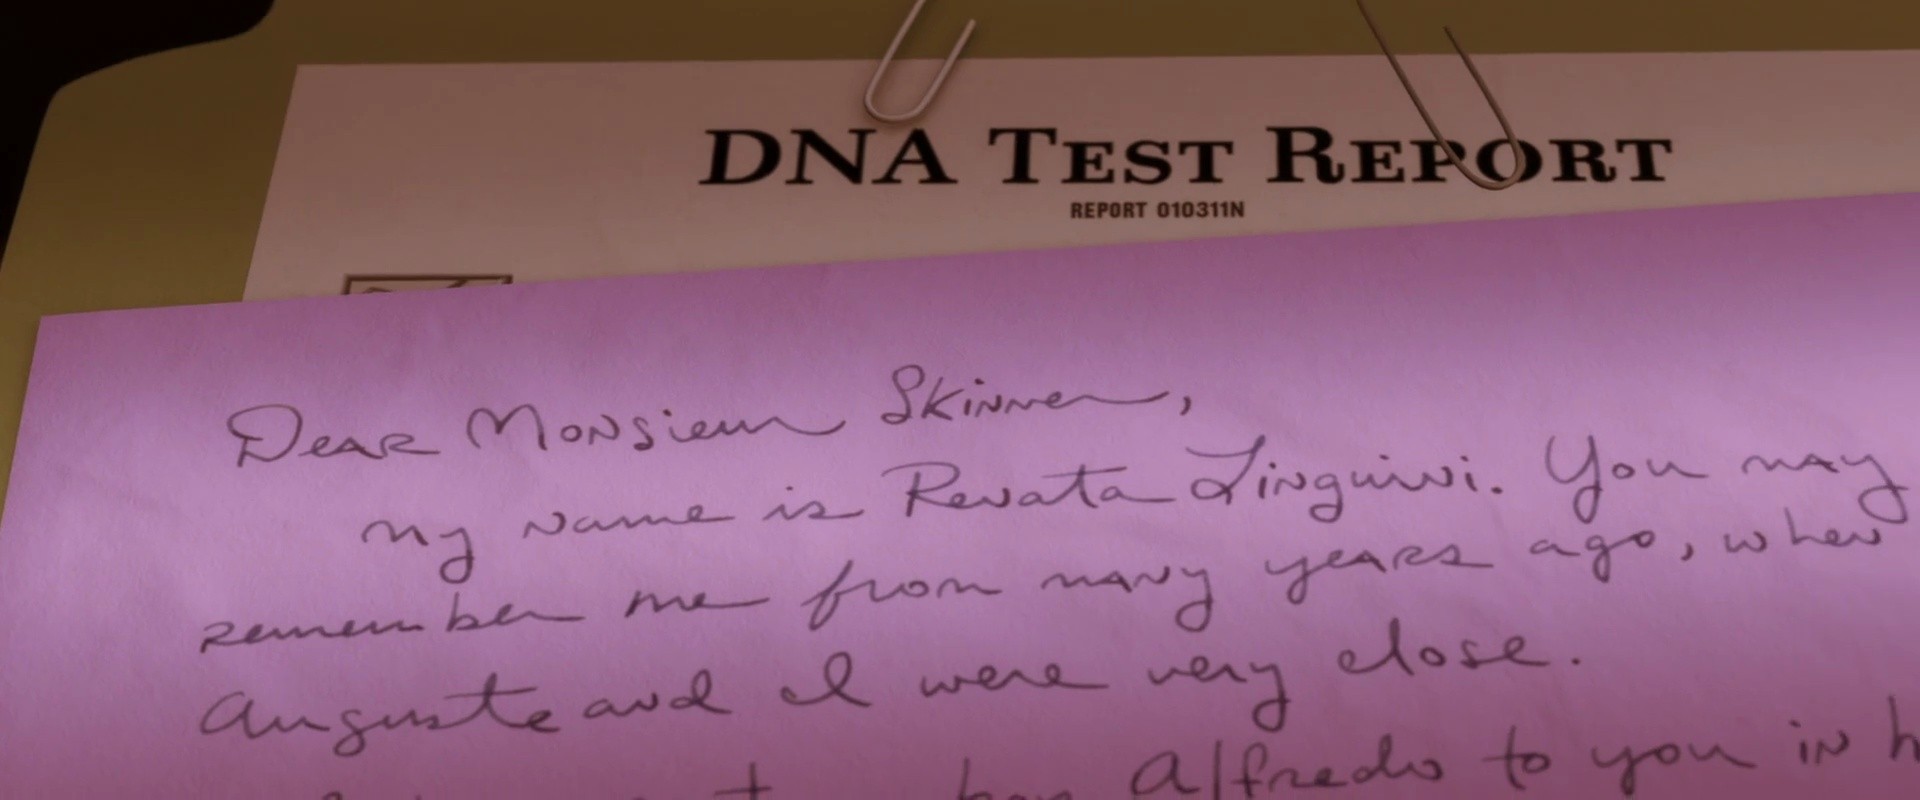 DNA TEST REPORT
REPORT 010311N
Dear Monsieur Skinner,
my name is Renata Linguini. You may
remember me from many years ago, when
Auguste and I were very close.
Alfredo to you in